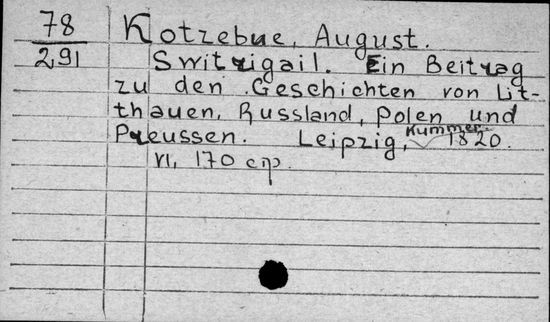 78
291
Kotzebue, August.
Switrigail. Ein Beitrag
zu den Geschichten von Lit-
thauen, Russland, Polen und
Preussen. Leipzig, Kummer. 1820.
VI, 170 стр.